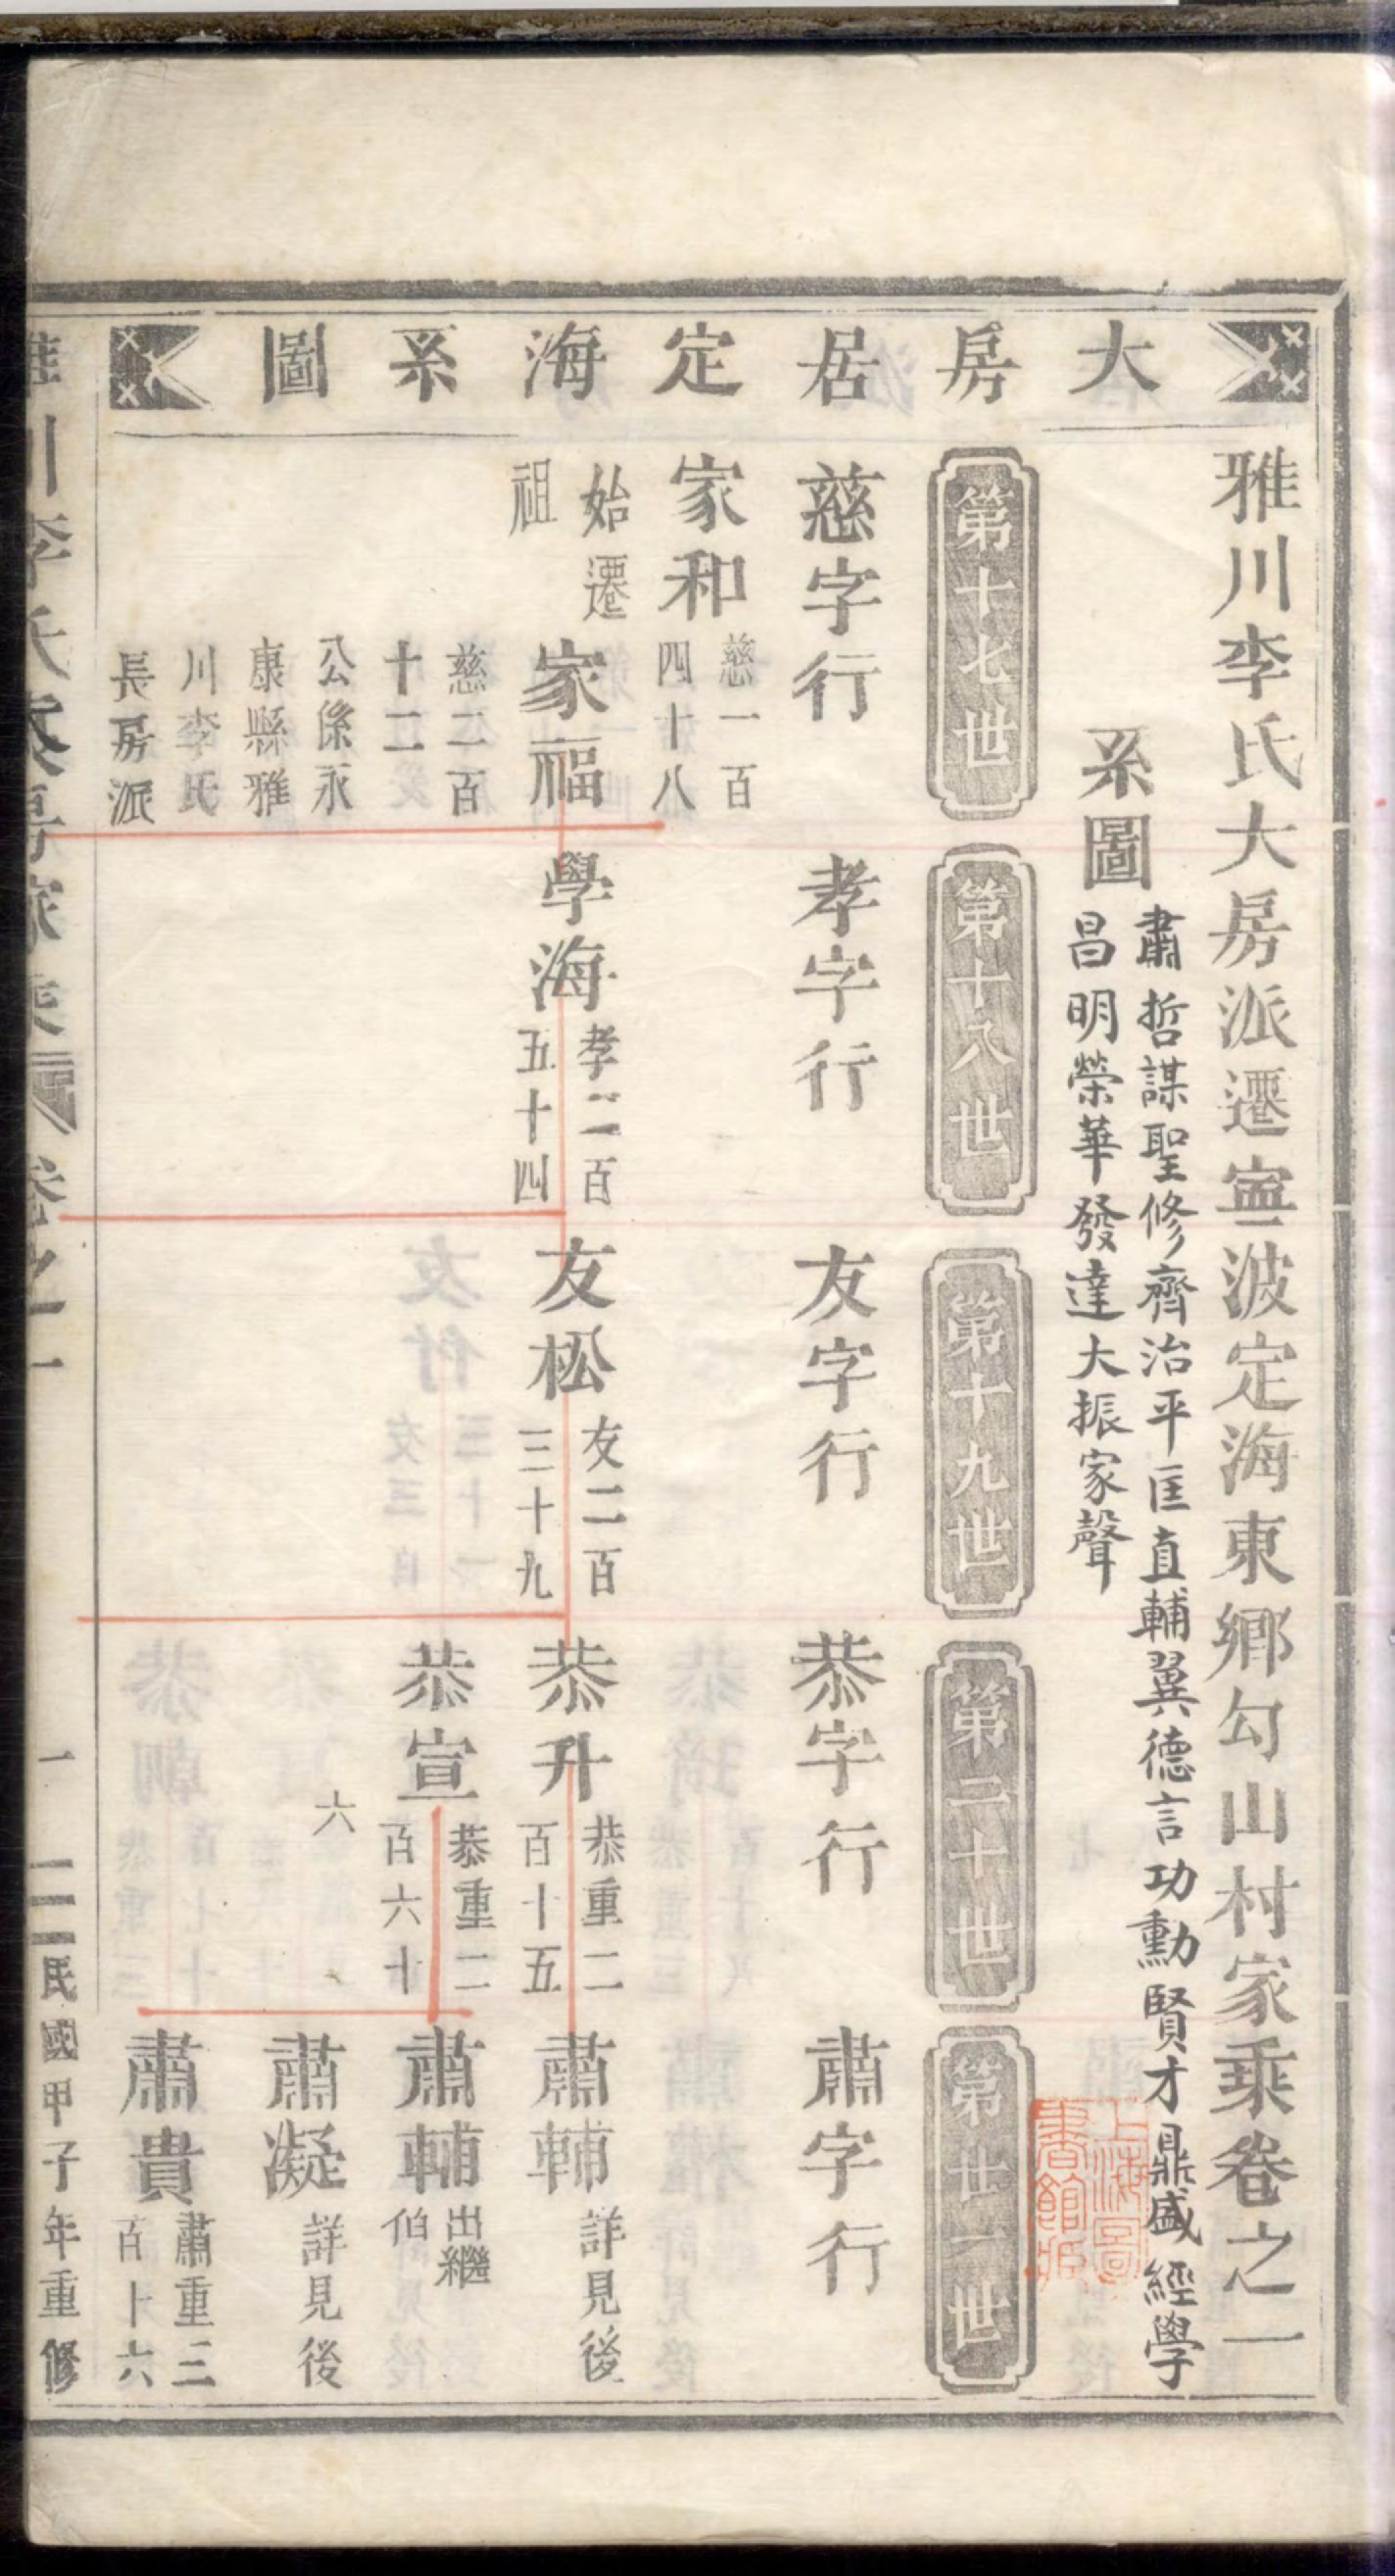 大房居定海系圖
雅川李氏大房派遷寧波定海東鄉勾山村家乘卷之一
系圖
肅哲謀聖修齊治平匡直輔翼德言功勳賢才鼎盛經學
昌明榮華發達大振家聲
第十七世
第十八世
第十九世
第二十世
第廿一世
慈字行
孝字行
友字行
恭字行
肅字行
家和
慈一百
四十八
始遷
祖
家福
慈二百
十二
公係永
康縣雅
川李氏
長房派
學海
孝二百
五十四
友松
友二百
三十九
恭升
恭重二
百十五
肅輔
詳見後
恭宣
恭重二
百六十
六
肅輔
出繼
伯
肅凝
詳見後
肅貴
肅重三
百十六
卷之一
一
民國甲子年重修
上海圖
書館